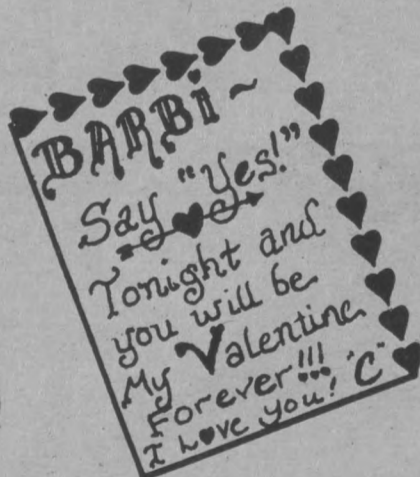 BARBi ~
Say "Yes!"
Tonight and
you will be
My Valentine
Forever!!!
I Love you! "C"